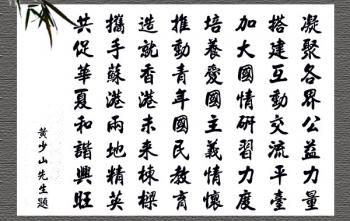 凝聚各界公益力量
搭建互動交流平臺
加大國情研習力度
培養愛國主義情懷
推動青年國民教育
造就香港未来棟樑
攜手蘇港兩地精英
共促華夏和諧興旺
黃少山先生題